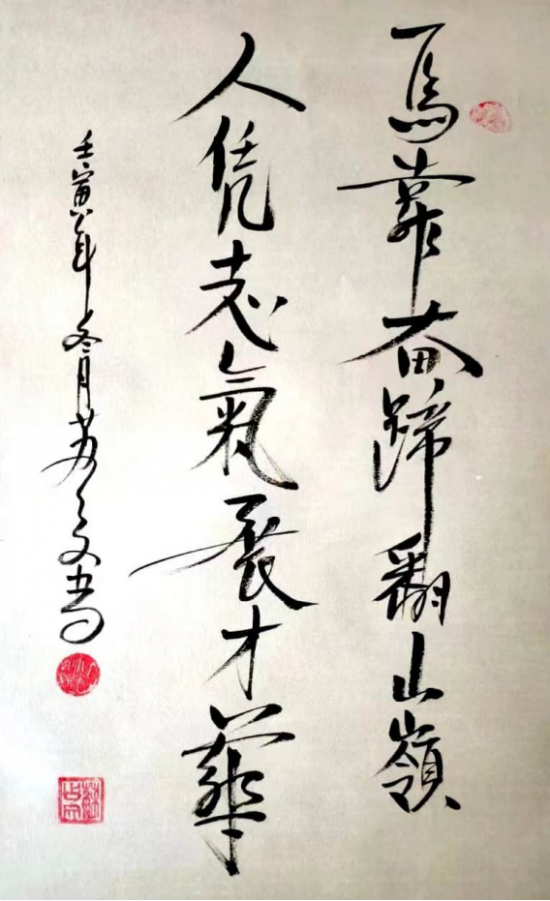 馬靠奋蹄翻山嶺
人凭志氣展才華
壬寅年冬月苏文书